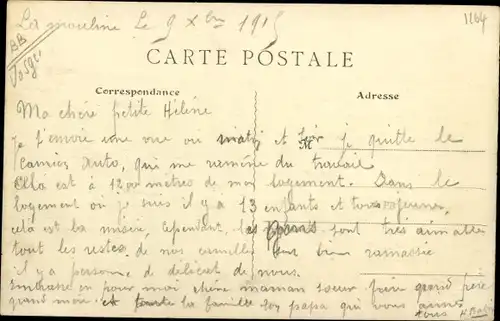 La mouline Le 9 Xbre 1915
1164
BB
Vosges
CARTE POSTALE
Correspondance
Adresse
Ma chère petite Hélène
je t'envoie une vue ou matin et soir je quitte le
camion auto, qui me ramène du travail
Cela est à 1200 mètres de mon logement. Dans le
logement ou je suis il y a 13 enfants et tous jeunes,
cela est la misère, cependant, les gens sont très aimable
tout les restes de nos gamelles sont bien ramassée
il y a personne de délicat de nous.
embrasse en pour moi chère maman soeur frère grand père
grand mère et toute la famille ton papa qui vous aime
tous